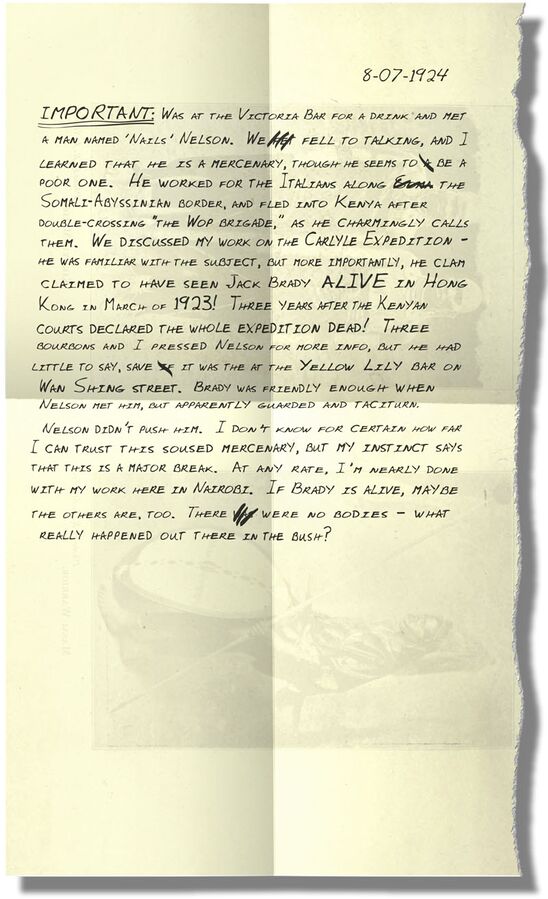 8-07-1924
IMPORTANT: WAS AT THE VICTORIA BAR FOR A DRINK AND MET
A MAN NAMED 'NAILS' NELSON. WE FELL TO TALKING, AND I
LEARNED THAT HE IS A MERCENARY, THOUGH HE SEEMS TO BE A
POOR ONE. HE WORKED FOR THE ITALIANS ALONG THE
SOMALI-ABYSSINIAN BORDER, AND FLED INTO KENYA AFTER
DOUBLE-CROSSING "THE WOP BRIGADE," AS HE CHARMINGLY CALLS
THEM. WE DISCUSSED MY WORK ON THE CARLYLE EXPEDITION -
HE WAS FAMILIAR WITH THE SUBJECT, BUT MORE IMPORTANTLY, HE CLAM
CLAIMED TO HAVE SEEN JACK BRADY ALIVE IN HONG
KONG IN MARCH OF 1923! THREE YEARS AFTER THE KENYAN
COURTS DECLARED THE WHOLE EXPEDITION DEAD! THREE
BOURBONS AND I PRESSED NELSON FOR MORE INFO, BUT HE HAD
LITTLE TO SAY, SAVE IT WAS THE AT THE YELLOW LILY BAR ON
WAN SHING STREET. BRADY WAS FRIENDLY ENOUGH WHEN
NELSON MET HIM, BUT APPARENTLY GUARDED AND TACITURN.
NELSON DIDN'T PUSH HIM. I DON'T KNOW FOR CERTAIN HOW FAR
I CAN TRUST THIS SOUSED MERCENARY, BUT MY INSTINCT SAYS
THAT THIS IS A MAJOR BREAK. AT ANY RATE, I'M NEARLY DONE
WITH MY WORK HERE IN NAIROBI. IF BRADY IS ALIVE, MAYBE
THE OTHERS ARE, TOO. THERE WERE NO BODIES - WHAT
REALLY HAPPENED OUT THERE IN THE BUSH?